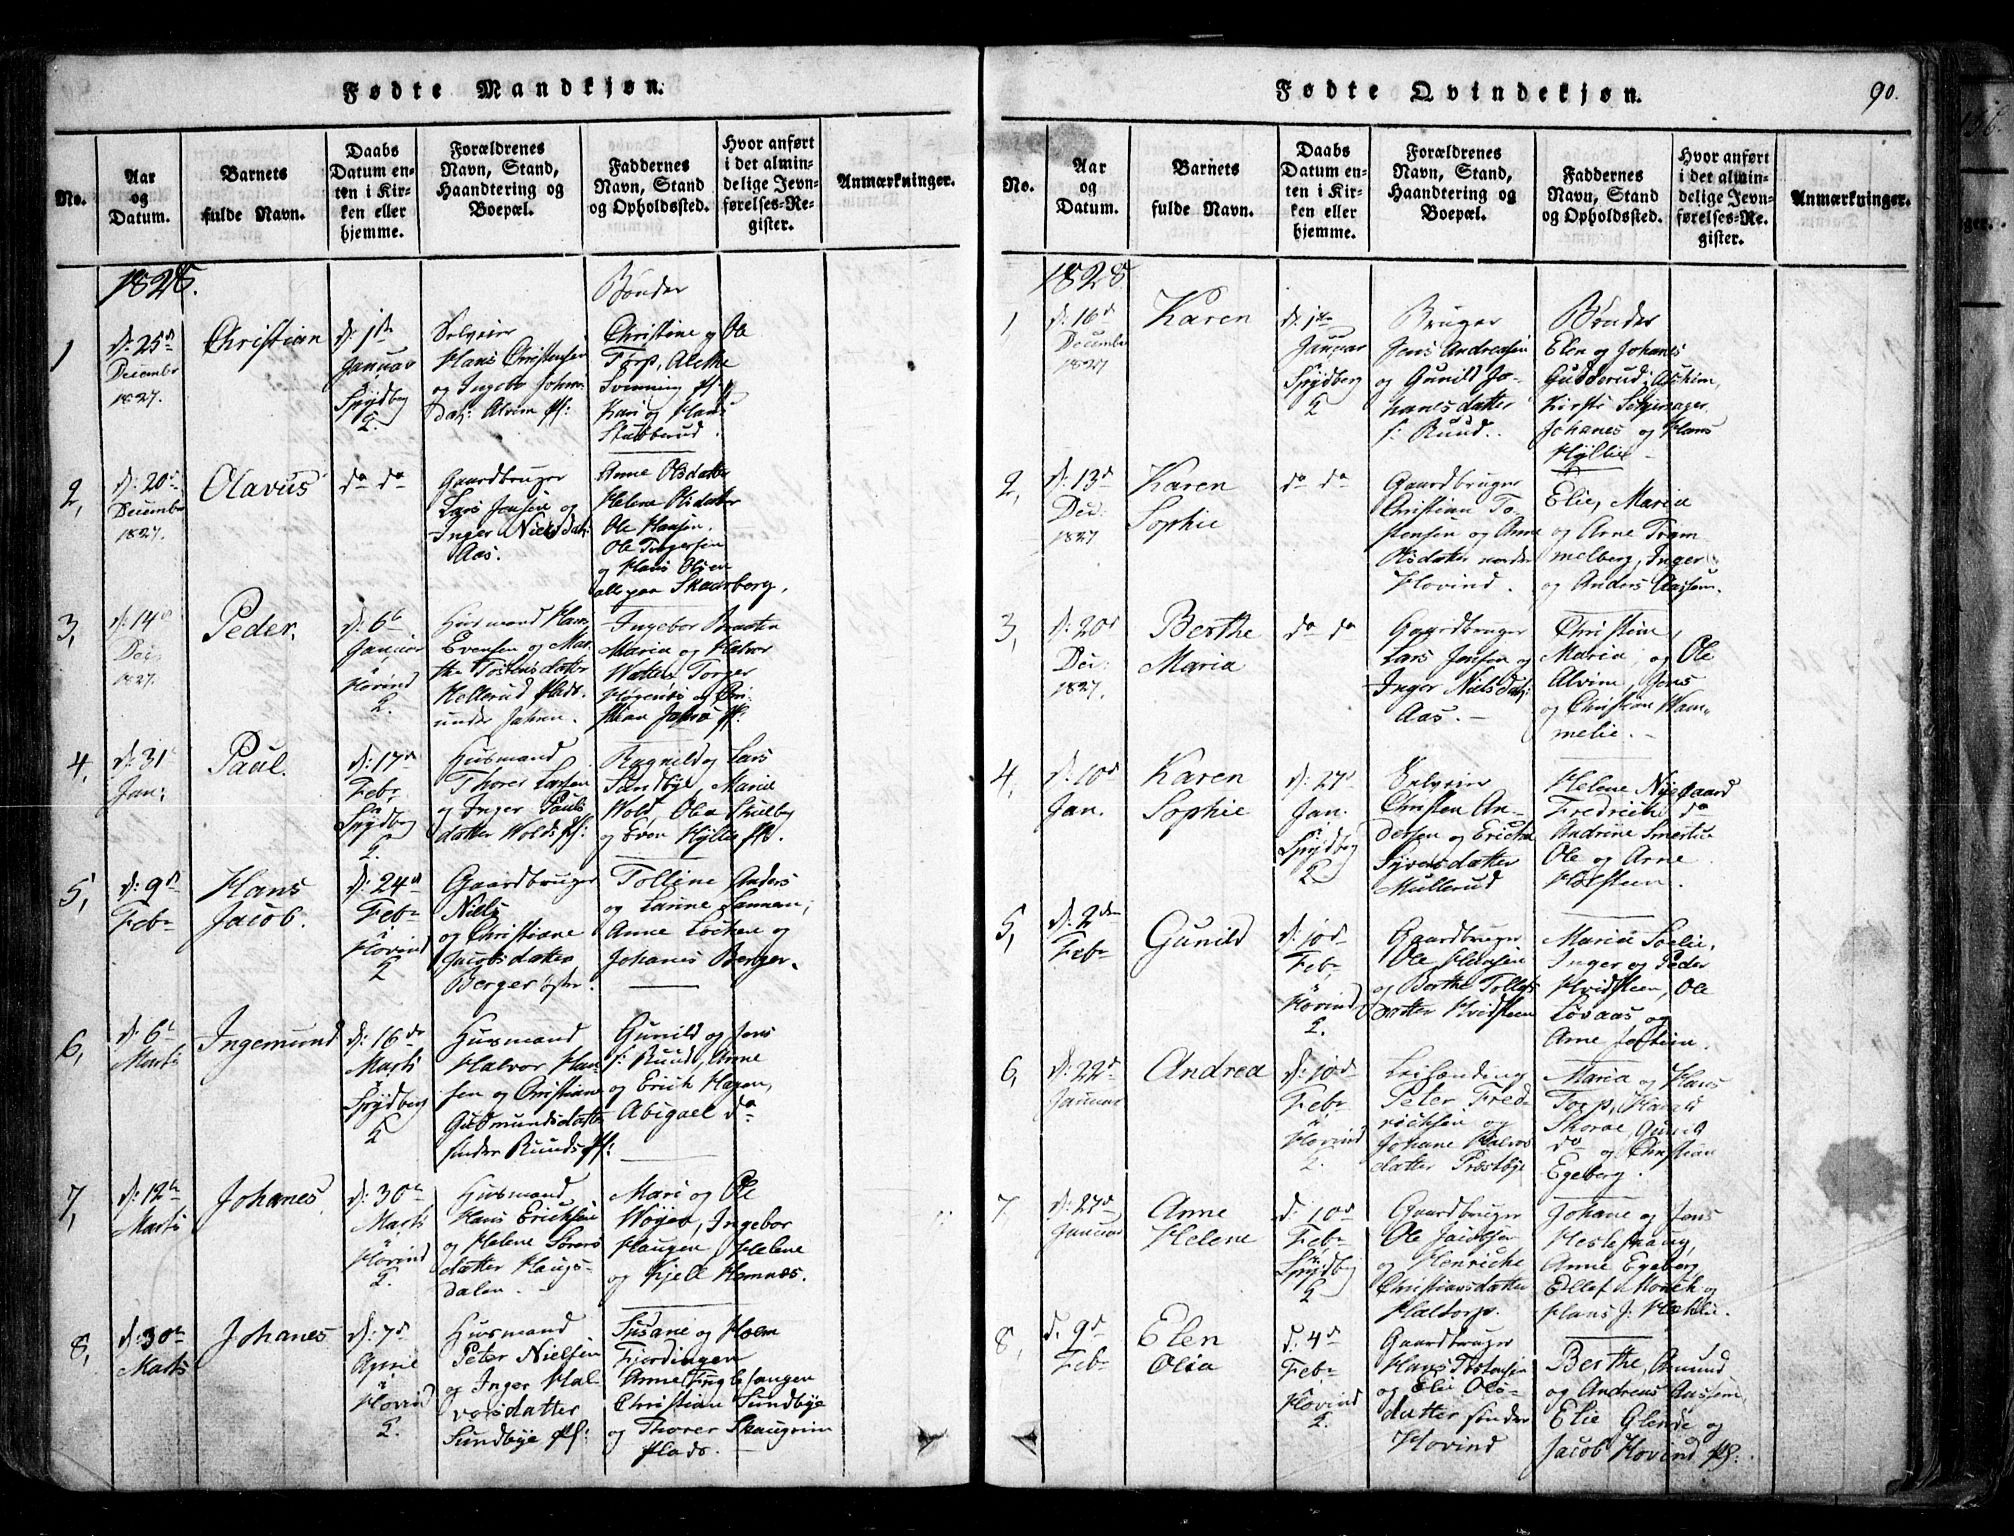 Fødte Mandkjøn.
No.
Aar
og
Datum.
Barnets
fulde Navn.
Daabs
Datum en-
ten i Kir-
ken eller
hjemme.
Forældrenes
Navn, Stand,
Haandtering og
Boepæl.
Faddernes
Navn, Stand
og Opholdssted.
Hvor anført
i det almin-
delige Jevn-
førelses-Re-
gister.
Anmærkninger.
1828.
1
d: 25d
Decembr
1827.
Christian
d: 1ste
Januar
Spydberg
2.
Selveier
Hans Christensen
og Ingebr Johns
Alvim
Bønder
Christine og Ole
Torp, Alethe
Svenning
Kari og Hans
Stubberud.
2,
d: 20d
Decembr
1827.
Olavus
do do
Gaardbruger
Lars Jensen og
Inger Niels dat:
Aas.
Anne Olsdatter
Helene Olsdatter
Ole Hansen.
Ole Torgersen
og Hans Olsen
alle paa Skaarberg.
3,
d: 14d
Dec:
1827.
Peder.
d: 6te
Januar
i
Hovind
2.
Huusmand Hans
Evensen og Mar-
the Tostensdatter
Kellerud Plads
under Jahren.
Ingebor Braaten
Maria og Halvor
Torger
og Chri-
stian
4,
d: 31
Jan:
Paul.
d: 17d
Febr
Spydberg
2.
Huusmand
Thorer Larsen
og Inger Pauls
datter Wolds
Ragnild og Lars
Sundbye, Marie
Wold, Ole Skulby
og Even Hyllie
5,
d: 9d
Febr
Hans
Jacob.
d: 24d
Febr
i
Hovind
2
Gaardbruger
Niels
og Christiane
Jacobsdatter
Berger østre.
Tolline Anders
og Laurine
Anne Løcken og
Johanes Berger.
6,
d: 6te
Marts
Ingemund
d: 16de
Marts
Spydberg
2
Huusmand
Halvor Han-
sen og Christiane
Gudmundsdatter
Gunild og Jens
s: Ruud, Anne
og Erich Hagen,
Abigael do
7,
d: 12te
Marts
Johanes.
d: 30te
Marts
i
Hovind
2.
Huusmand
Hans Erichsen
og Helene Sørens
datter Haugs-
dalen.
Mari og Ole
Ingebor
Haugen, Helene
og Kjell Hemnæs.
8,
d: 30te
Marts
Johanes
d: 7d
April
i
Hovind
2.
Huusmand
Peter Nielsen
og Inger Hal-
vorsdatter
Sundbye
Susane og Holm
Fjordingen
Anne Fuglesangen
Christian Sundbye
og Thorer
Plads.
Fødte Qvindekjøn.
90.
No.
Aar
og
Datum.
Barnets
fulde Navn.
Daabs
Datum en-
ten i Kir-
ken eller
hjemme.
Forældrenes
Navn, Stand,
Haandtering og
Boepæl.
Faddernes
Navn, Stand
og Opholdssted.
Hvor anført
i det almin-
delige Jevn-
førelses-Re-
gister.
Anmærkninger.
1828
1
d: 16d
Decembr
1827
Karen
d: 1ste
Januar
Spydberg
2
Bruger
Jens Andreasen
og Gunild Jo-
hanesdatter
s: Ruud.
Bønder
Elen og Johanes
Gudderud, Aschim,
Kirsti
Johanes og Hans
Hyllie
2,
d: 13d
Dec:
1827
Karen
Sophie
do do
Gaardbruger
Christian To-
stensen og Anne
Olsdatter nordre
Hovind.
Elie, Maria
og Arne Tram-
melberg, Inger
og Anders Aassum.
3,
d: 20d
Dec:
1827.
Berthe
Maria
do do
Gaardbruger
Lars Jensen og
Inger Nielsdat:
Aas.
Christine,
Maria, og Ole
Alvim, Jens
og Christian Wam-
melie.
4,
d: 10d
Jan.
Karen
Sophie
d: 27d
Jan:
Spydberg
2.
Selveier
Christen An-
dersen og Ericha
Syversdatter
Mullerud
Helene Nyegaard
Fredriche do
Andrine Smertu
Ole og Arne
Holsteen.
5,
d: 2den
Febr
Gunild
d: 10d
Febr
i
Hovind
2.
Gaardbruger
Ole Hansen
og Berthe Tollefs
datter Hvidsteen
Maria Soelie,
Inger og Peder
Hvidsteen, Ole
Løvaas og
Arne
6,
d: 22d
Januar
Andrea
d: 10d
Febr
i
Hovind
2.
Leilænding
Peter Fred-
richsen og
Johane Halvors
datter Præstbye
Maria og Hans
Torp, Karen
do og Christian
Egeberg.
7.
d: 27d
Januar
Anne
Helene
d: 10d
Febr
Spydberg
2
Gaardbruger
Ole Jacobsen
og Henriche
Christiansdatter
Haltorp.
Johane og Jens
Heslefrang,
Anne Egeberg
Ellef Moræk og
Hans J. Hækli.
8,
d. 9d
Febr
Elen
Olea
d: 4d
Febr
i
Hovind
2.
Gaardbruger
Hans Tostensen
og Elie Ols-
datter søndre
Hovind
Berthe, Amund
og Andreas Aassum,
Elie Glende og
Jacob Hovind